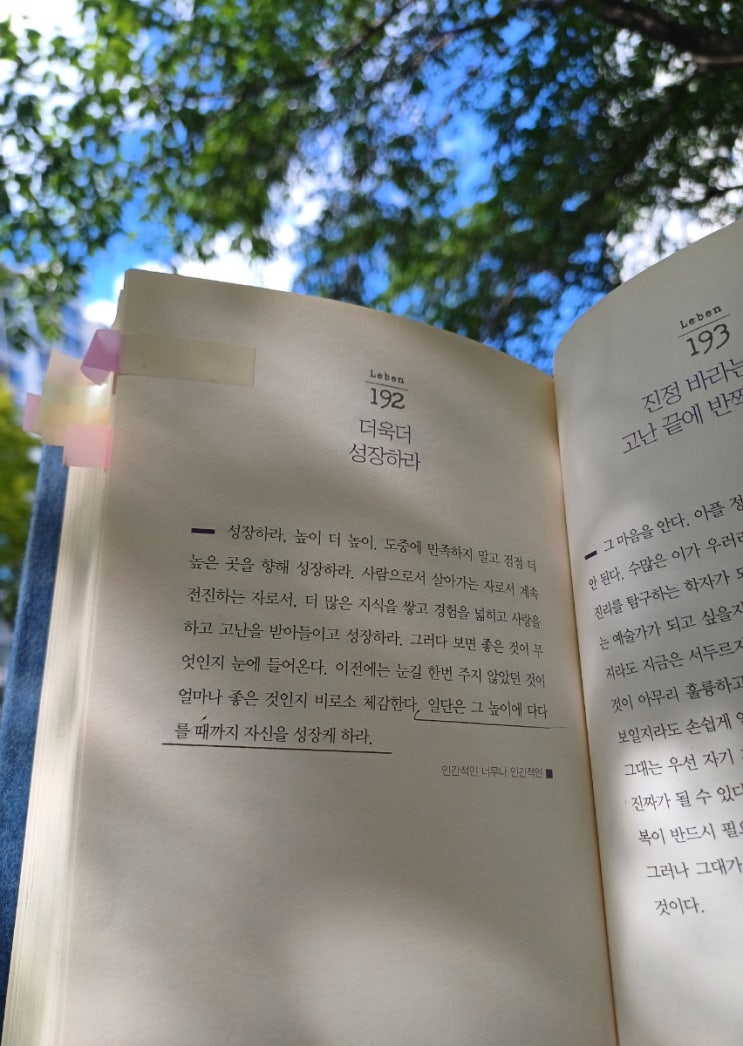 Leben
192
더욱더
성장하라
성장하라, 높이 더 높이. 도중에 만족하지 말고 점점 더
높은 곳을 향해 성장하라. 사람으로서 살아가는 자로서 계속
전진하는 자로서, 더 많은 지식을 쌓고 경험을 넓히고 사랑을
하고 고난을 받아들이고 성장하라. 그러다 보면 좋은 것이 무
엇인지 눈에 들어온다. 이전에는 눈길 한번 주지 않았던 것이
얼마나 좋은 것인지 비로소 체감한다. 일단은 그 높이에 다다
를 때까지 자신을 성장케 하라.
인간적인 너무나 인간적인
Leben
193
진정 바라는
고난 끝에
그 마음을 안다. 아플
안 된다. 수많은 이가
진리를 탐구하는 학자가
는 예술가가 되고
지라도 지금은
것이 아무리 훌륭하고
보일지라도 손쉽게
그대는 우선 자기
진짜가 될 수 있다
복이 반드시
그러나 그대가
것이다.